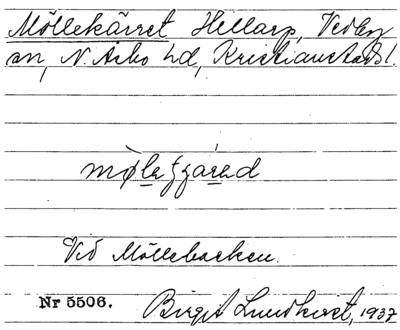 Möllekärret Hellarp, Vedby
sn, N. Åsbo hd, Kristianstads l.
Vid Möllebacken.
Nr 5506. Birgit Lundkvist, 1937